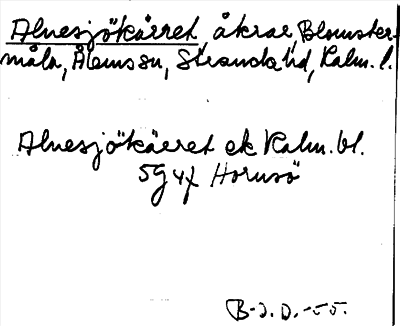 Alnesjökärret, åkrar, Blomster-
måla, Ålems sn, Stranda hd, Kalm. l.
Alnesjökärret ek Kalm. bl.
5G 4f Hornsö
B-J. D. -55.